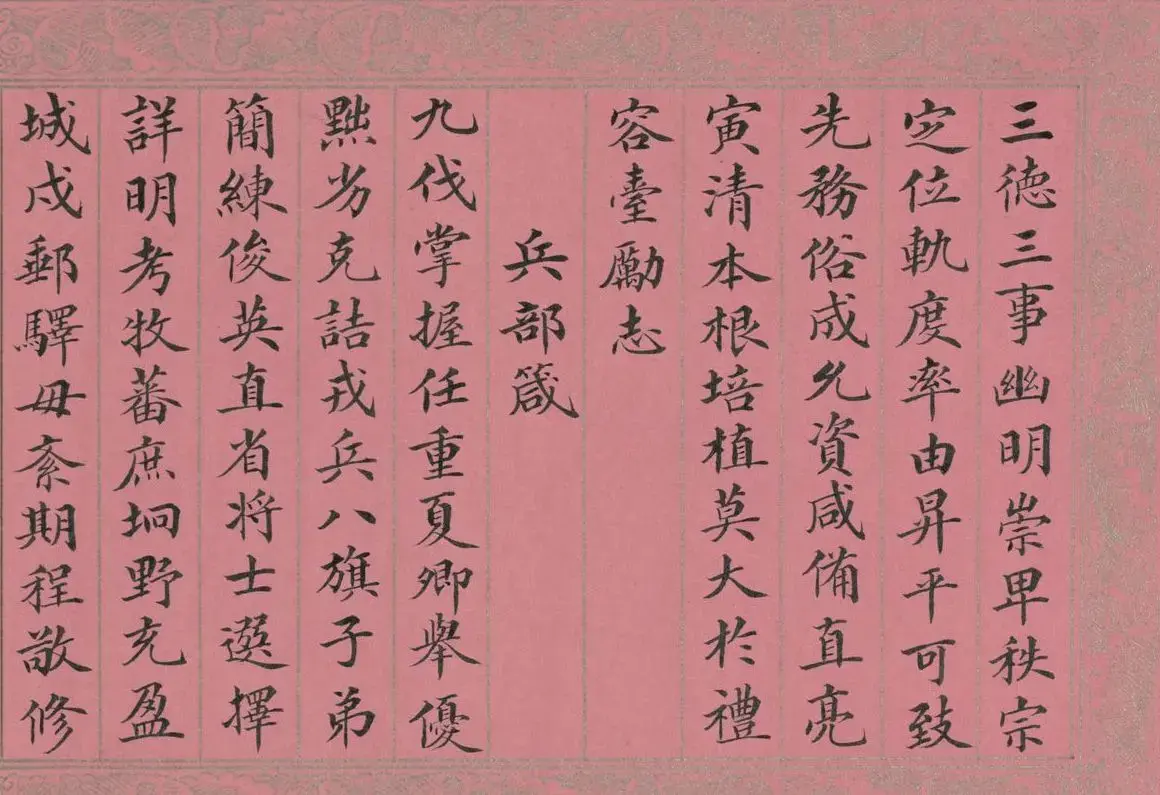 三徳三事幽明崇卑秩宗
定位軌度率由昇平可致
先務俗成允資咸備直亮
寅清本根培植莫大於禮
容臺勵志
兵部箴
九伐掌握任重夏卿舉優
黜劣克詰戎兵八旗子弟
簡練俊英直省将士選擇
詳明考牧蕃庶坰野充盈
城戍郵驛毋紊期程敬修